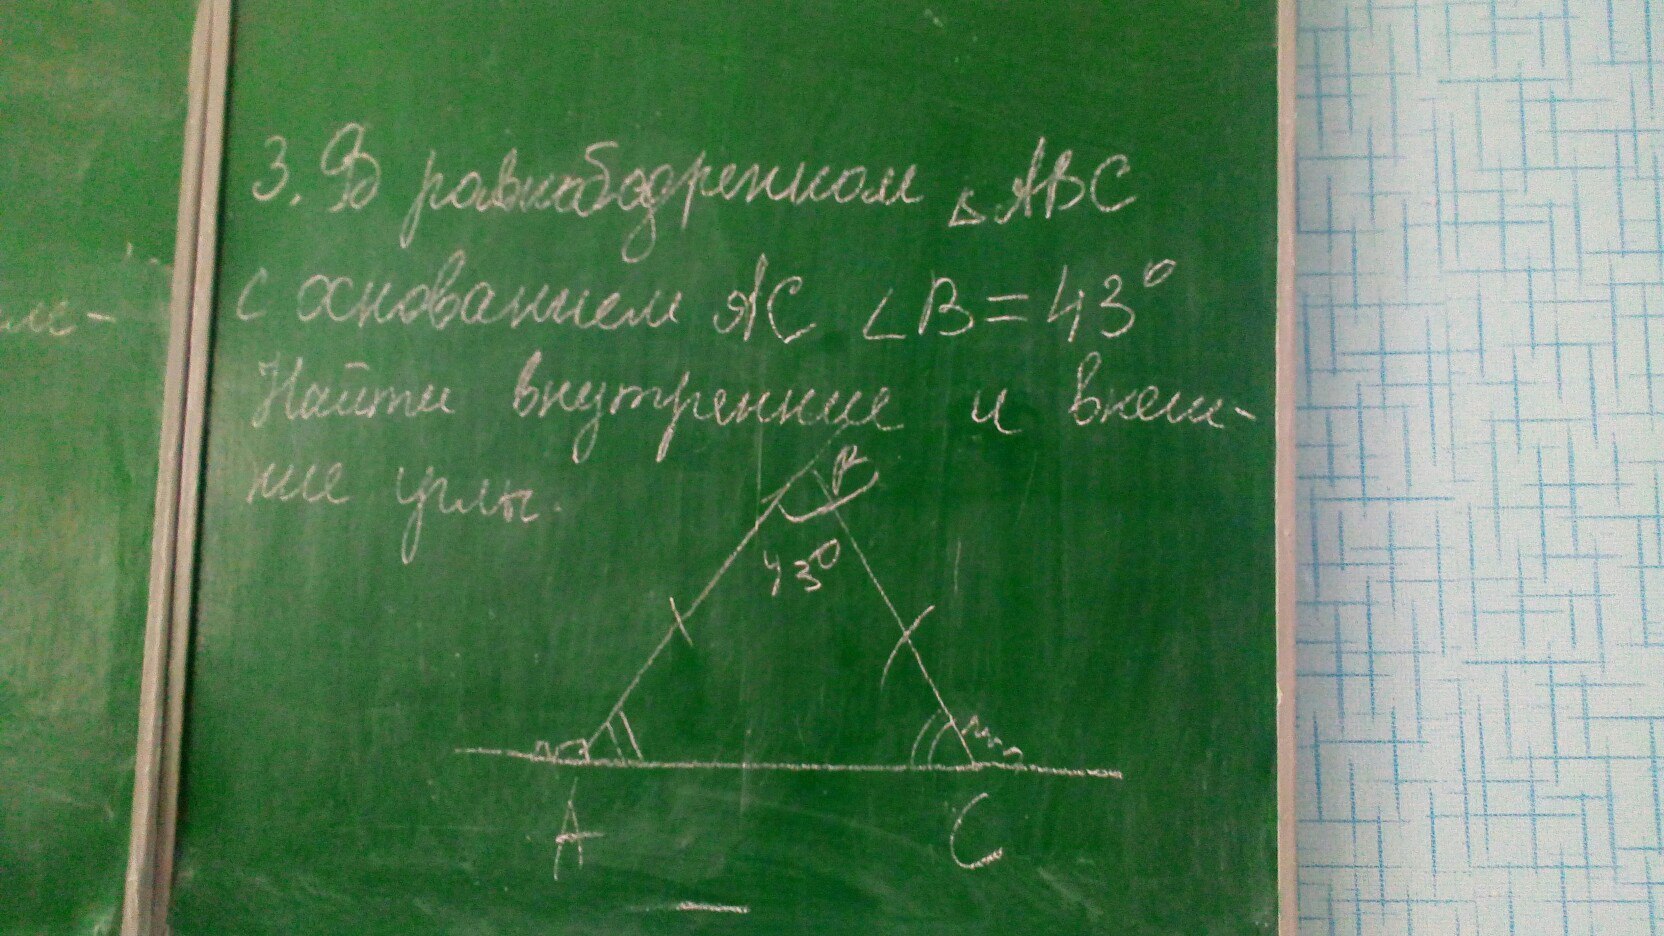 3. В равнобедренном △ABC
ме-
с основанием AC ∠B=43°
Найти внутренние и внеш-
ние углы.
B
43°
A
C